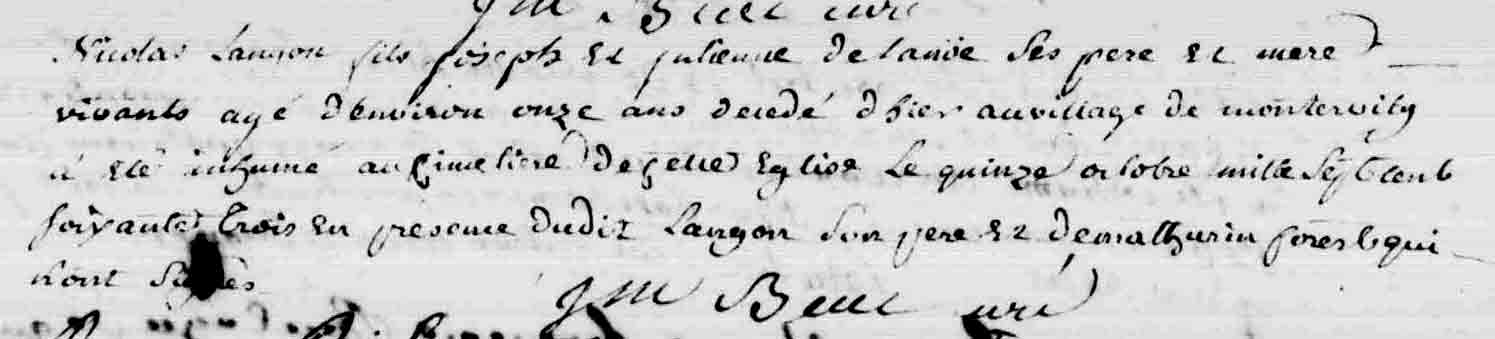 J M Beut curé
Nicolas Langon fils joseph Et julienne delanöe Ses pere Et mere
vivants agé denviron onze ans decedé dhier au village de
à eté inhumé au çimetiere de çette Eglise Le quinze octobre mille Sept cent
soixante trois En presence dudit Langon Son pere Et de mathurin forest qui
nont Signés
J M Beut curé